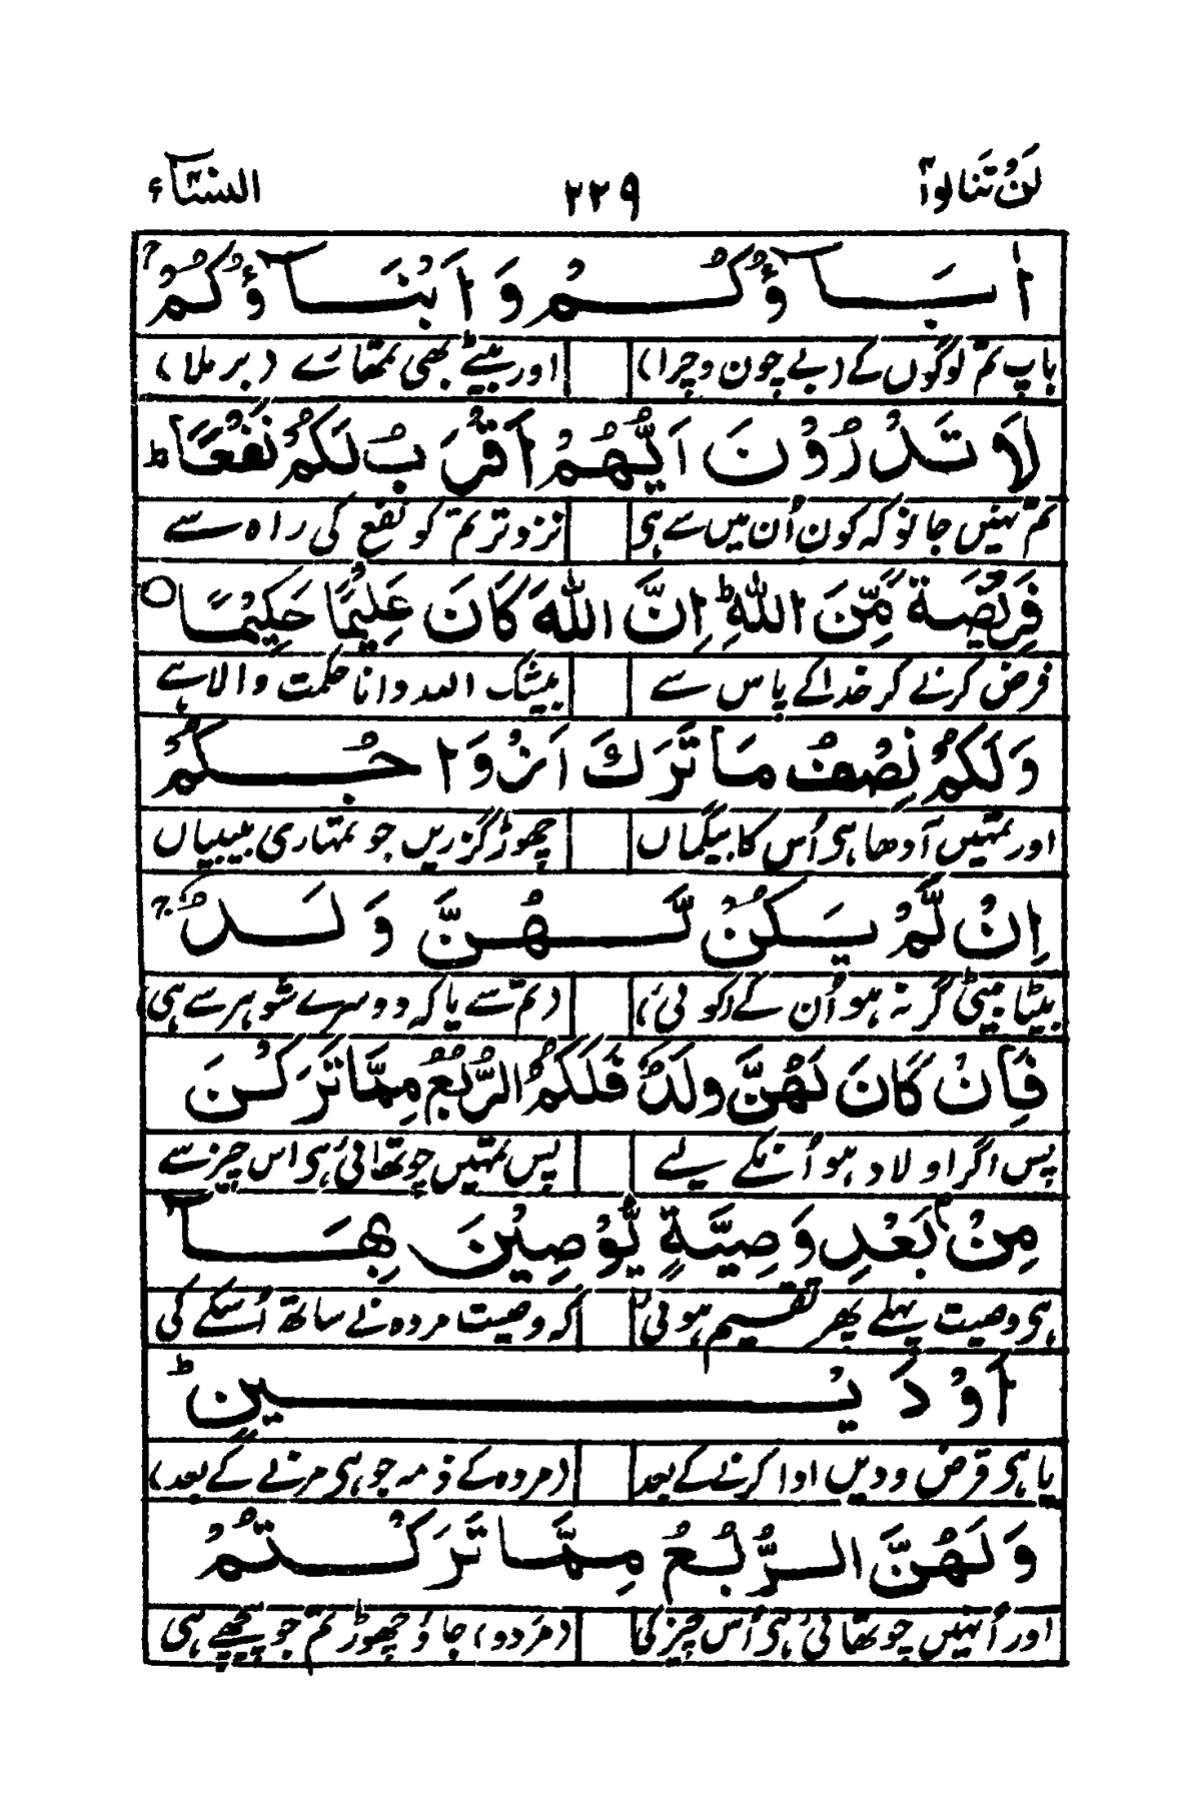 لَنْ تَنَالُوا ٢٢٩ النساء
اٰبَآؤُكُمْ وَ اَبْنَآؤُكُمْ
باپ تم لوگوں کے (بے چون وچرا) اور بیٹے بھی تمھارے (برملا)
لَا تَدْرُوْنَ اَيُّهُمْ اَقْرَبُ لَكُمْ نَفْعًا ؕ
تم نہیں جانو کہ کون اُن میں سے ہی نزدوتر تم کو نفع کی راہ سے
فَرِيْضَةً مِّنَ اللّٰهِ ؕ اِنَّ اللّٰهَ كَانَ عَلِيْمًا حَكِيْمًا ○
فرض کرنے کر خدا کے پاس سے بیشک اللہ دانا حکمت والا ہے
وَ لَكُمْ نِصْفُ مَا تَرَكَ اَزْوَاجُكُمْ
اور تمہیں آدھا ہی اُس کا بیگماں چھوڑ گزریں جو تمہاری بیبیاں
اِنْ لَّمْ يَكُنْ لَّهُنَّ وَلَدٌ ۚ
بیٹا بیٹی گر نہ ہو اُن کے (کوئی) (تم سے یا کہ دوسرے شوہر سے ہی)
فَاِنْ كَانَ لَهُنَّ وَلَدٌ فَلَكُمُ الرُّبُعُ مِمَّا تَرَكْنَ
پس اگر اولاد ہو اُنکے لیے پس تمہیں چوتھائی ہی اس چیز سے
مِنْۢ بَعْدِ وَصِيَّةٍ يُّوْصِيْنَ بِهَآ
ہی وصیت پہلے پھر تقسیم ہوئی کہ وصیت مردہ نے ساتھ اُسکے کی
اَوْ دَيْنٍ ؕ
یا ہی قرض و دیں ادا کرنے کے بعد (مردہ کے ذمہ جو ہی مرنے کے بعد)
وَ لَهُنَّ الرُّبُعُ مِمَّا تَرَكْتُمْ
اور اُنہیں چوتھائی ہی اُس چیز کی (مردو) جاؤ چھوڑ تم جو پیچھے ہی